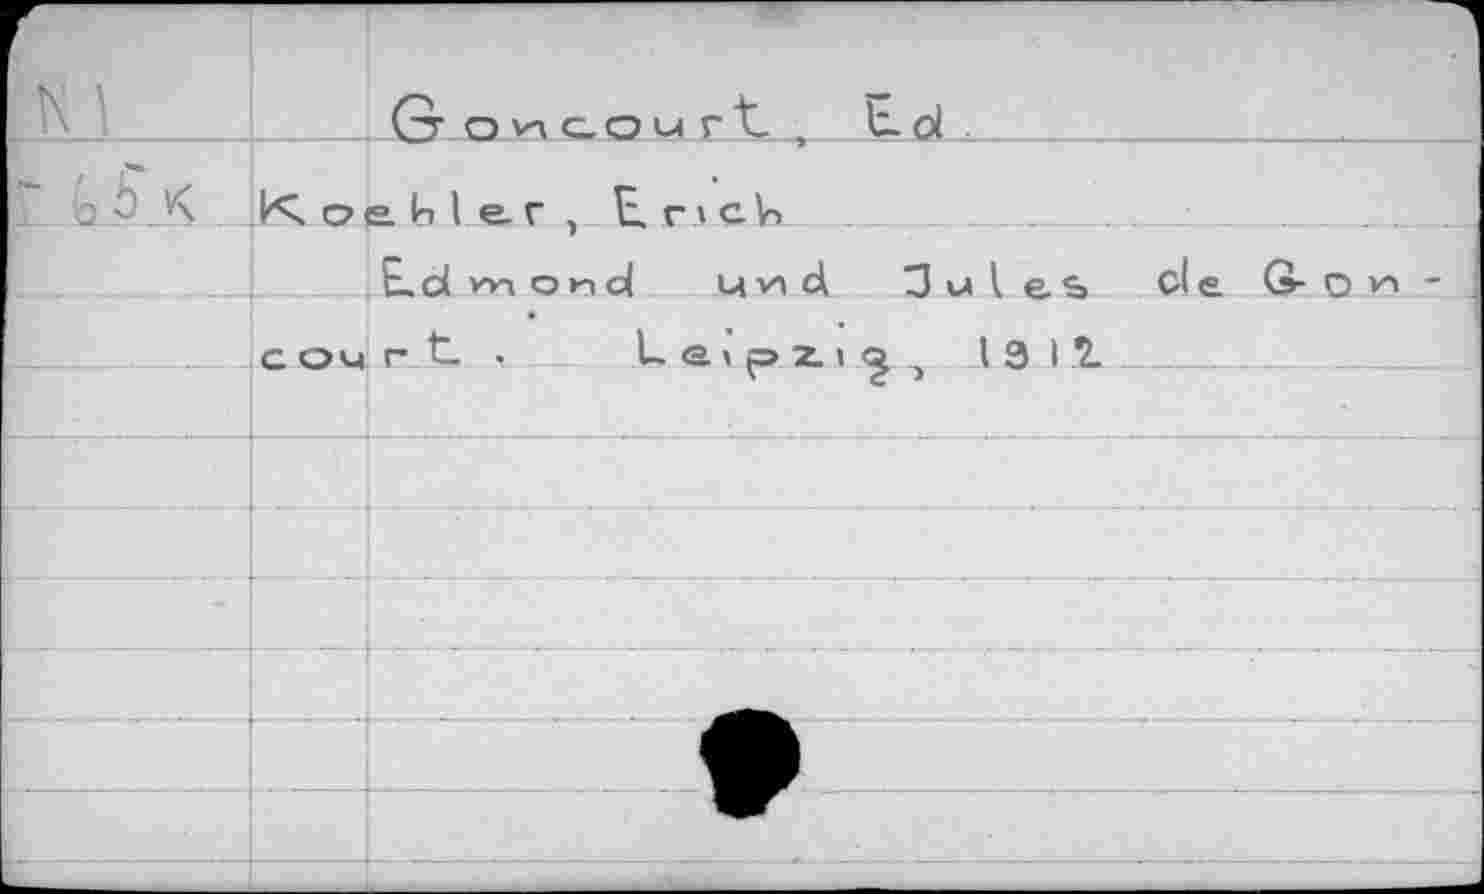 N1 Goncourt, Ed.
65K Koehler, Erich
Edmond und Jules de Gon-
court. Leipzig, 1912